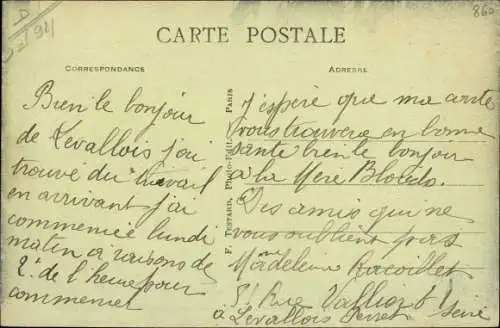 D 94
860
CARTE POSTALE
CORRESPONDANCE
ADRESSE
Bien le bonjour
de Levallois j'ai
trouvé du travail
en arrivant j'ai
commencée lundi
matin a raisons de
2f de l'heure pour
commencer
F. TESTARD, PARIS
j'espère que ma carte
vous trouvera en bonne
santé bien le bonjour
a la Mère
Des amis qui ne
vous oublient pas
Madeleine Racoillet
51 Rue
a Levallois Perret Seine